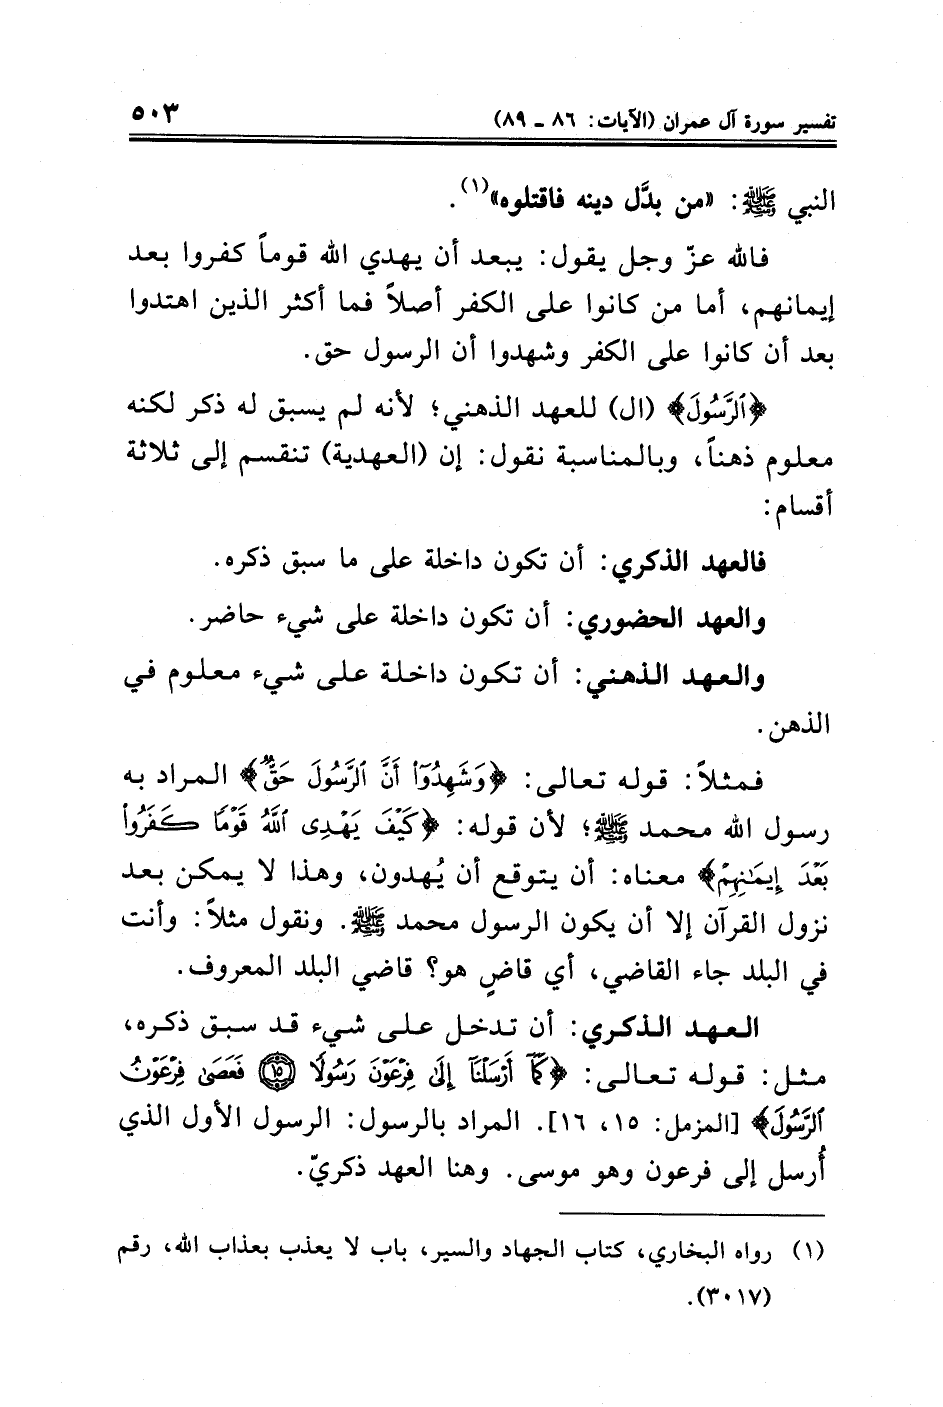 تفسير سورة آل عمران (الآيات: ٨٦ - ٨٩) ٥٠٣
النبي ﷺ: «من بدَّل دينه فاقتلوه»(١).
فالله عزّ وجل يقول: يبعد أن يهدي الله قوماً كفروا بعد
إيمانهم، أما من كانوا على الكفر أصلاً فما أكثر الذين اهتدوا
بعد أن كانوا على الكفر وشهدوا أن الرسول حق.
﴿ٱلرَّسُولَ﴾ (ال) للعهد الذهني؛ لأنه لم يسبق له ذكر لكنه
معلوم ذهناً، وبالمناسبة نقول: إن (العهدية) تنقسم إلى ثلاثة
أقسام:
فالعهد الذكري: أن تكون داخلة على ما سبق ذكره.
والعهد الحضوري: أن تكون داخلة على شيء حاضر.
والعهد الذهني: أن تكون داخلة على شيء معلوم في
الذهن.
فمثلاً: قوله تعالى: ﴿وَشَهِدُوٓا۟ أَنَّ ٱلرَّسُولَ حَقٌّ﴾ المراد به
رسول الله محمد ﷺ؛ لأن قوله: ﴿كَيْفَ يَهْدِى ٱللَّهُ قَوْمًا كَفَرُوا۟
بَعْدَ إِيمَٰنِهِمْ﴾ معناه: أن يتوقع أن يُهدون، وهذا لا يمكن بعد
نزول القرآن إلا أن يكون الرسول محمد ﷺ. ونقول مثلاً: وأنت
في البلد جاء القاضي، أي قاضٍ هو؟ قاضي البلد المعروف.
العهد الذكري: أن تدخل على شيء قد سبق ذكره،
مثل: قوله تعالى: ﴿كَمَآ أَرْسَلْنَآ إِلَىٰ فِرْعَوْنَ رَسُولًا ١٥ فَعَصَىٰ فِرْعَوْنُ
ٱلرَّسُولَ﴾ [المزمل: ١٥، ١٦]. المراد بالرسول: الرسول الأول الذي
أُرسل إلى فرعون وهو موسى. وهنا العهد ذكريّ.
(١) رواه البخاري، كتاب الجهاد والسير، باب لا يعذب بعذاب الله، رقم
(٣٠١٧).